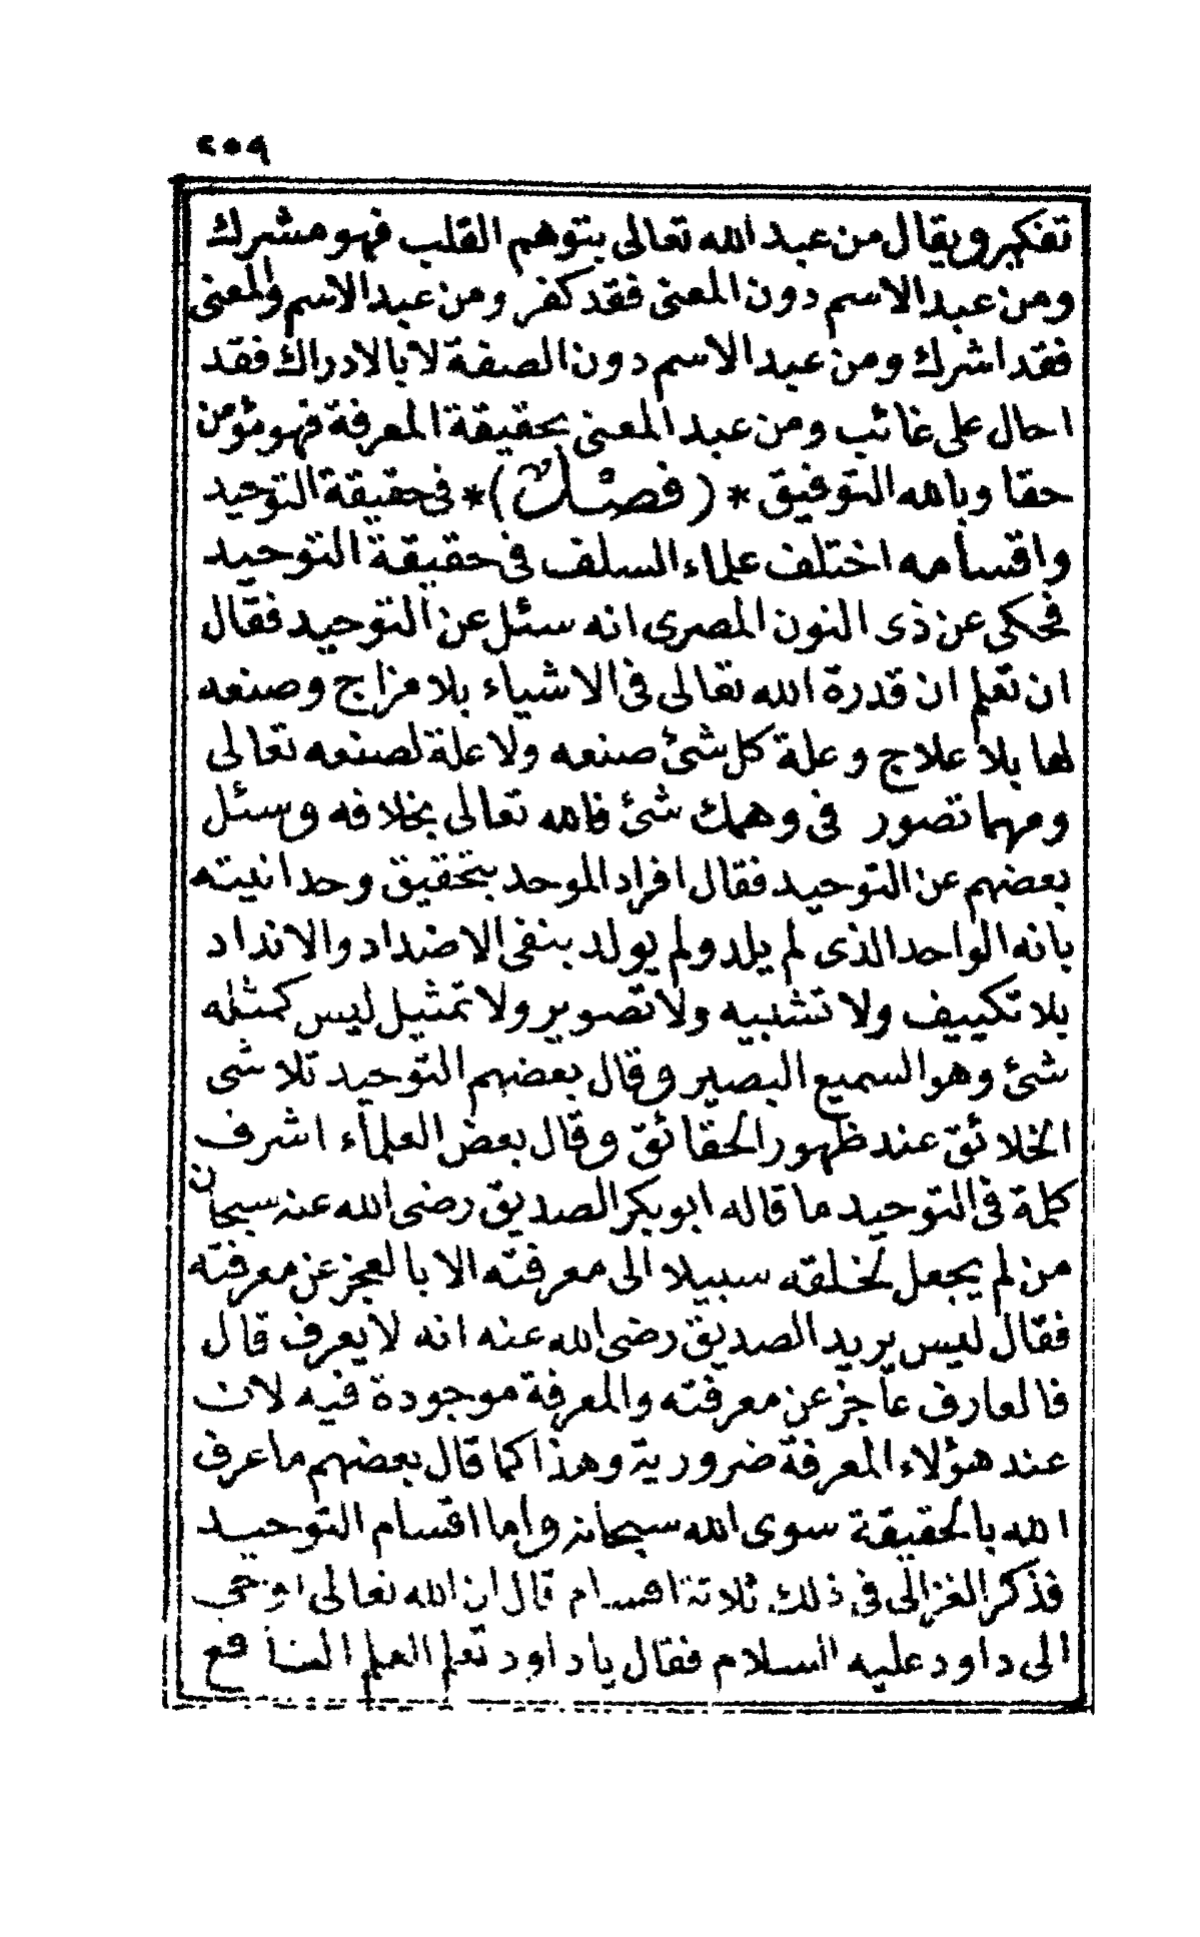 ٢٥٩
تفكير ويقال من عبد الله تعالى بتوهم القلب فهو مشرك
ومن عبد الاسم دون المعنى فقد كفر ومن عبد الاسم والمعنى
فقد اشرك ومن عبد الاسم دون الصفة لا بالادراك فقد
احال على غائب ومن عبد المعنى بحقيقة المعرفة فهو مؤمن
حقا وبالله التوفيق *(فصل)* فى حقيقة التوحيد
واقسامه اختلف علماء السلف فى حقيقة التوحيد
فحكى عن ذى النون المصرى انه سئل عن التوحيد فقال
ان تعلم ان قدرة الله تعالى فى الاشياء بلا مزاج وصنعه
لها بلا علاج وعلة كل شئ صنعه ولا علة لصنعه تعالى
ومهما تصور فى وهمك شئ فالله تعالى بخلافه وسئل
بعضهم عن التوحيد فقال افراد الموحد بتحقيق وحدانيته
بانه الواحد الذى لم يلد ولم يولد بنفى الاضداد والانداد
بلا تكييف ولا تشبيه ولا تصوير ولا تمثيل ليس كمثله
شئ وهو السميع البصير وقال بعضهم التوحيد تلاشى
الخلائق عند ظهور الحقائق وقال بعض العلماء اشرف
كلمة فى التوحيد ما قاله ابو بكر الصديق رضى الله عنه سبحان
من لم يجعل لخلقه سبيلا الى معرفته الا بالعجز عن معرفته
فقال ليس يريد الصديق رضى الله عنه انه لا يعرف قال
فالعارف عاجز عن معرفته والمعرفة موجودة فيه لان
عند هؤلاء المعرفة ضرورية وهذا كما قال بعضهم ما عرف
الله بالحقيقة سوى الله سبحانه واما اقسام التوحيد
فذكر الغزالى فى ذلك ثلاثة اقسام قال ان الله تعالى اوحى
الى داود عليه السلام فقال يا داود تعلم العلم النافع